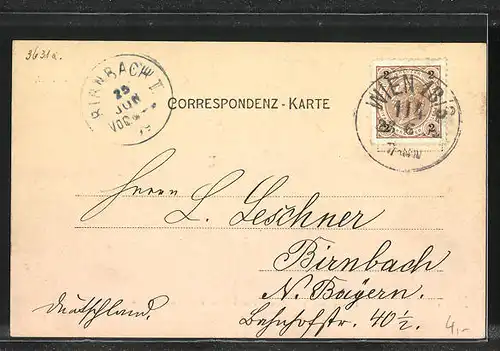 3631a.
BIRNBACH II
25
JUN
CORRESPONDENZ - KARTE
2 2
WIEN 18/3
2 2
Herrn L. Leschner
Birnbach
N. Bayern.
Deutschland.
Bahnhofstr. 40½.
4,-